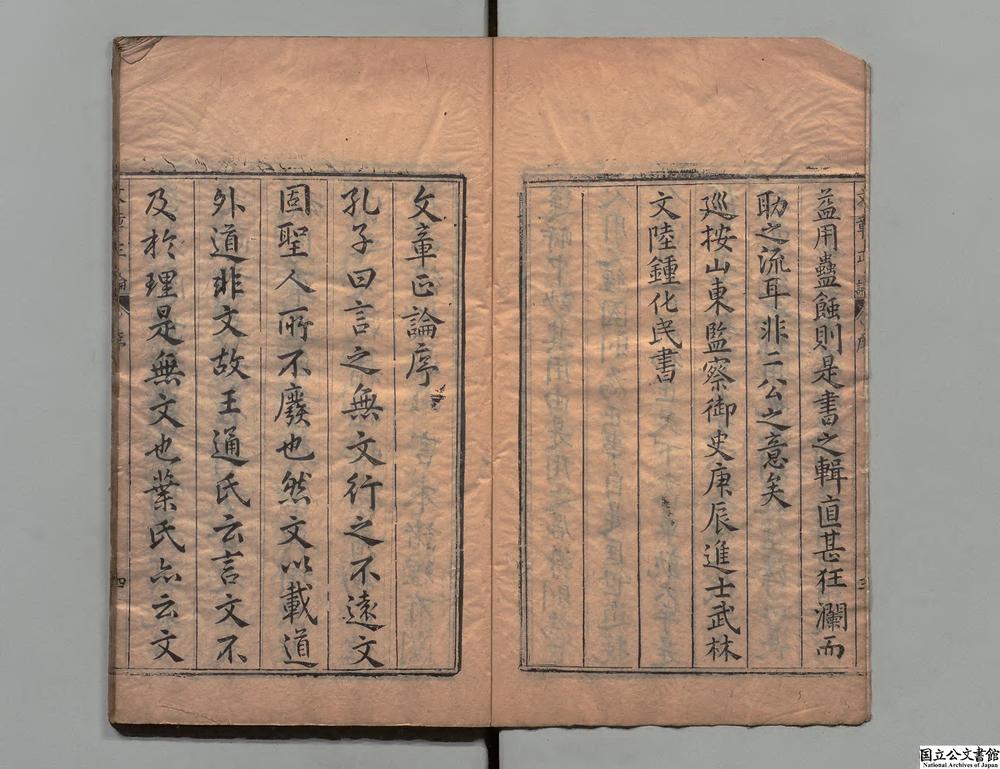 益用蠱蝕則是書之輯直甚狂瀾而
助之流耳非二公之意矣
廵按山東監察御史庚辰進士武林
文陸鍾化民書
文章正論序
孔子曰言之無文行之不遠文
固聖人所不廢也然文以載道
外道非文故王通氏云言文不
及於理是無文也葉氏亦云文
四
国立公文書館
National Archives of Japan